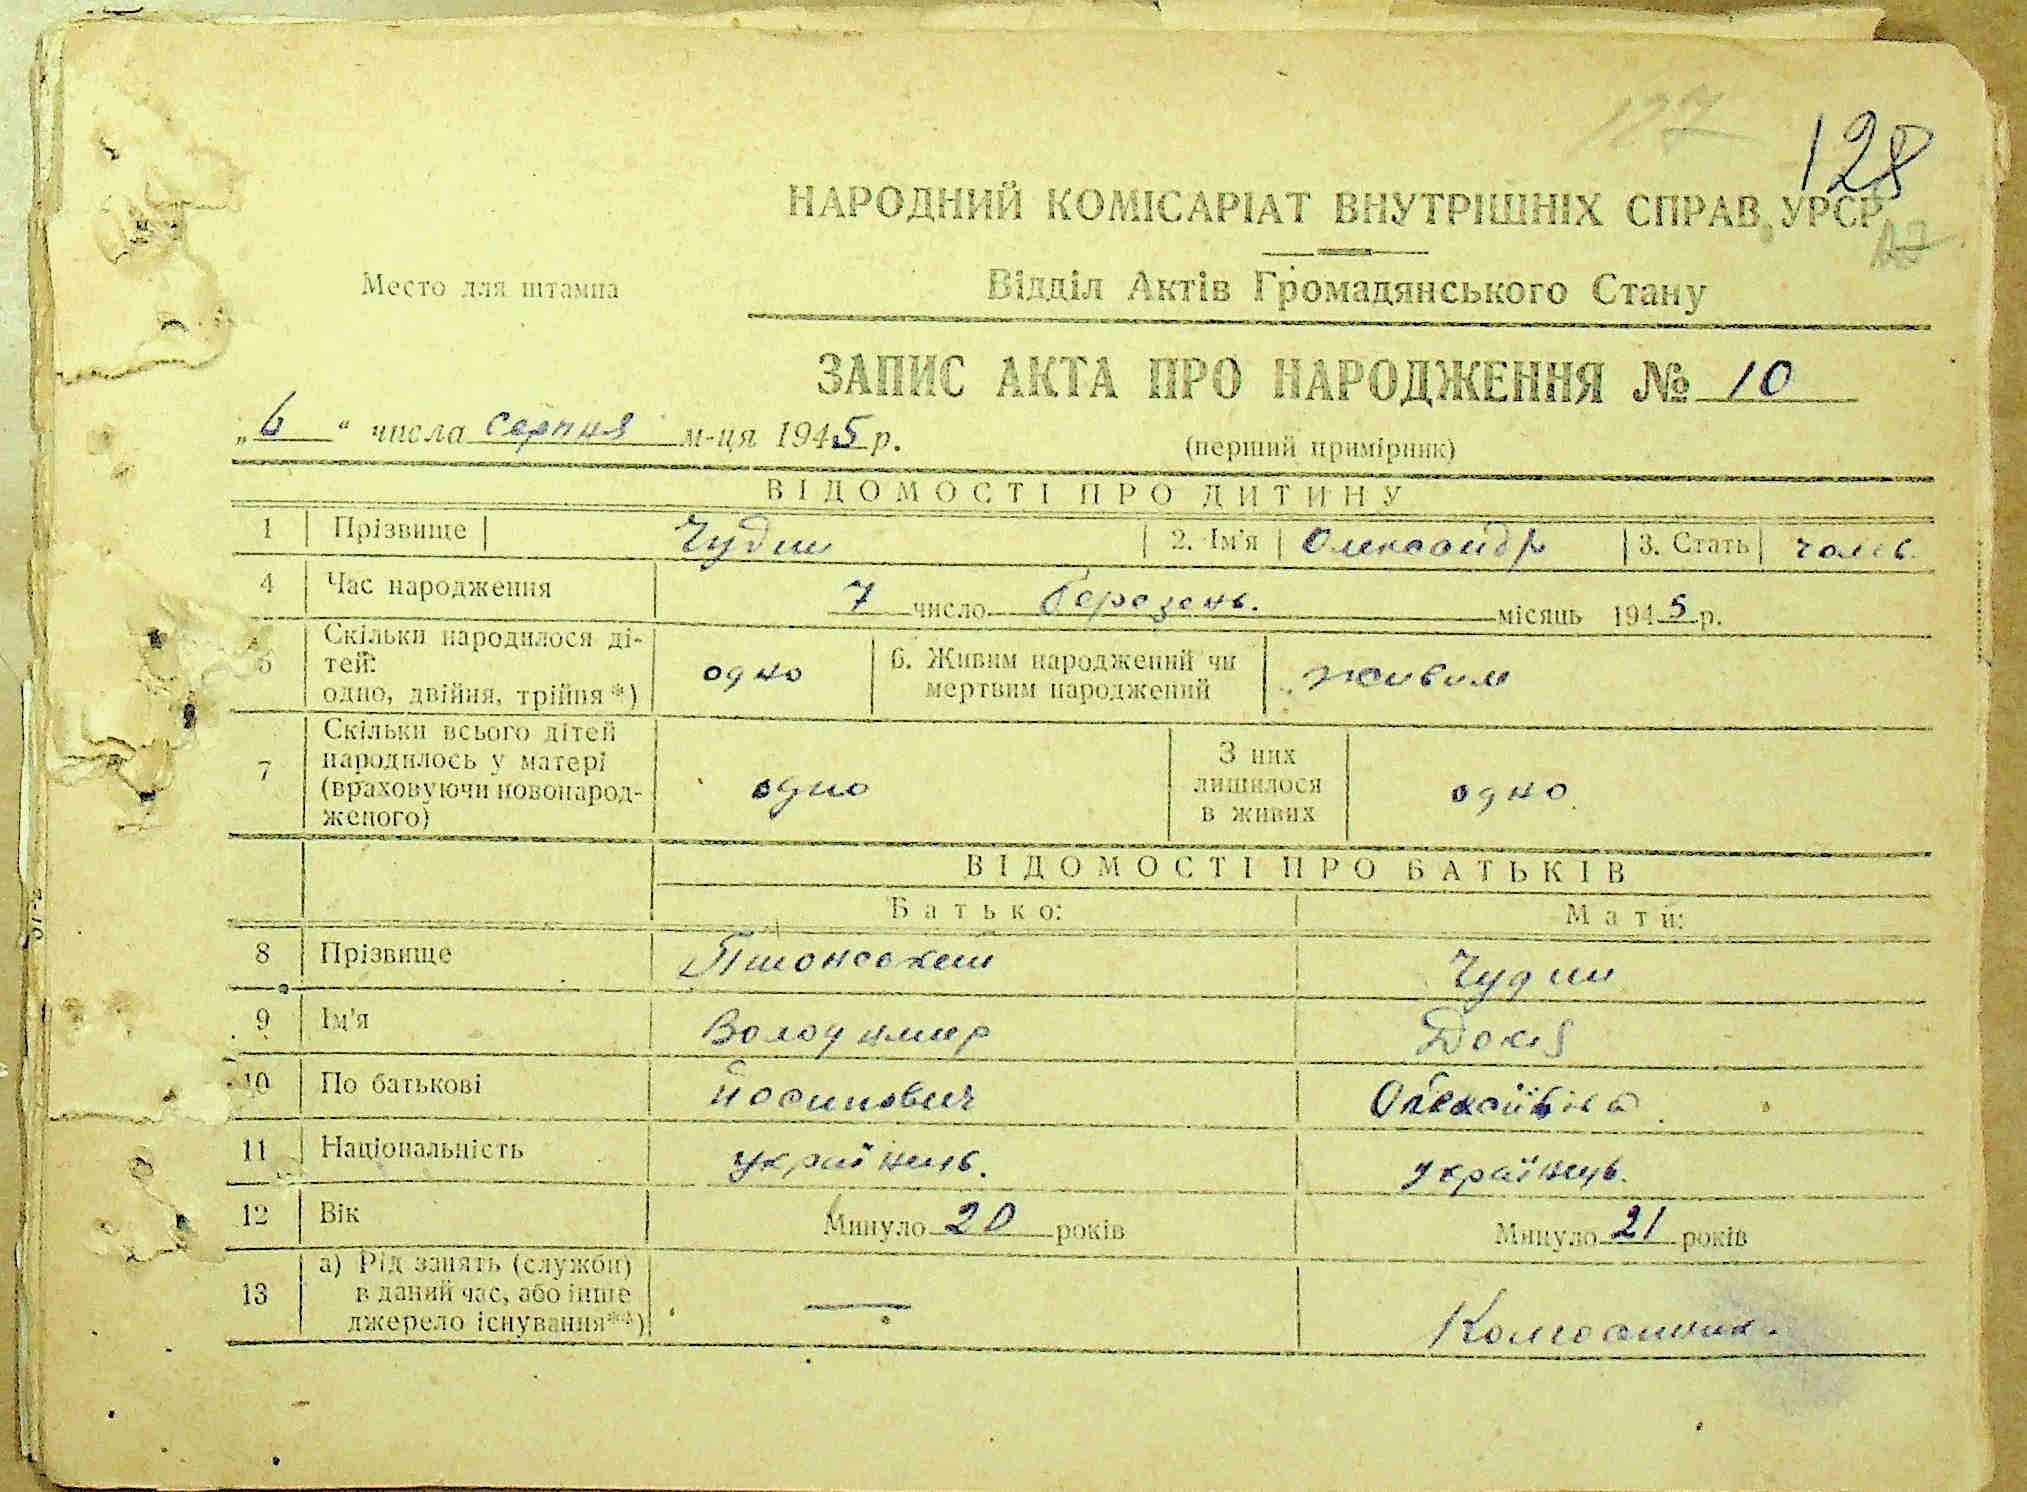 127
128
НАРОДНИЙ КОМІСАРІАТ ВНУТРІШНІХ СПРАВ УРСР
Место для штампа
Відділ Актів Громадянського Стану
ЗАПИС АКТА ПРО НАРОДЖЕННЯ № 10
„6“ числа серпня м-ця 1945 р.
(перший примірник)
ВІДОМОСТІ ПРО ДИТИНУ
1 Прізвище Чудик 2. Ім'я Олександр 3. Стать чолов.
4 Час народження 7 число березень. місяць 1945 р.
5 Скільки народилося ді-
тей:
одно, двійня, трійня*)
одно
6. Живим народжений чи
мертвим народжений
живим
7 Скільки всього дітей
народилось у матері
(враховуючи новонарод-
женого)
одно
З них
лишилося
в живих
одно.
ВІДОМОСТІ ПРО БАТЬКІВ
Батько: Мати:
8 Прізвище
9 Ім'я Володимир Докія
10 По батькові Йосипович Олексіївна
11 Національність українець. українець.
12 Вік Минуло 20 років Минуло 21 років
13 а) Рід занять (служби)
в даний час, або інше
джерело існування**)
— Колгоспник.